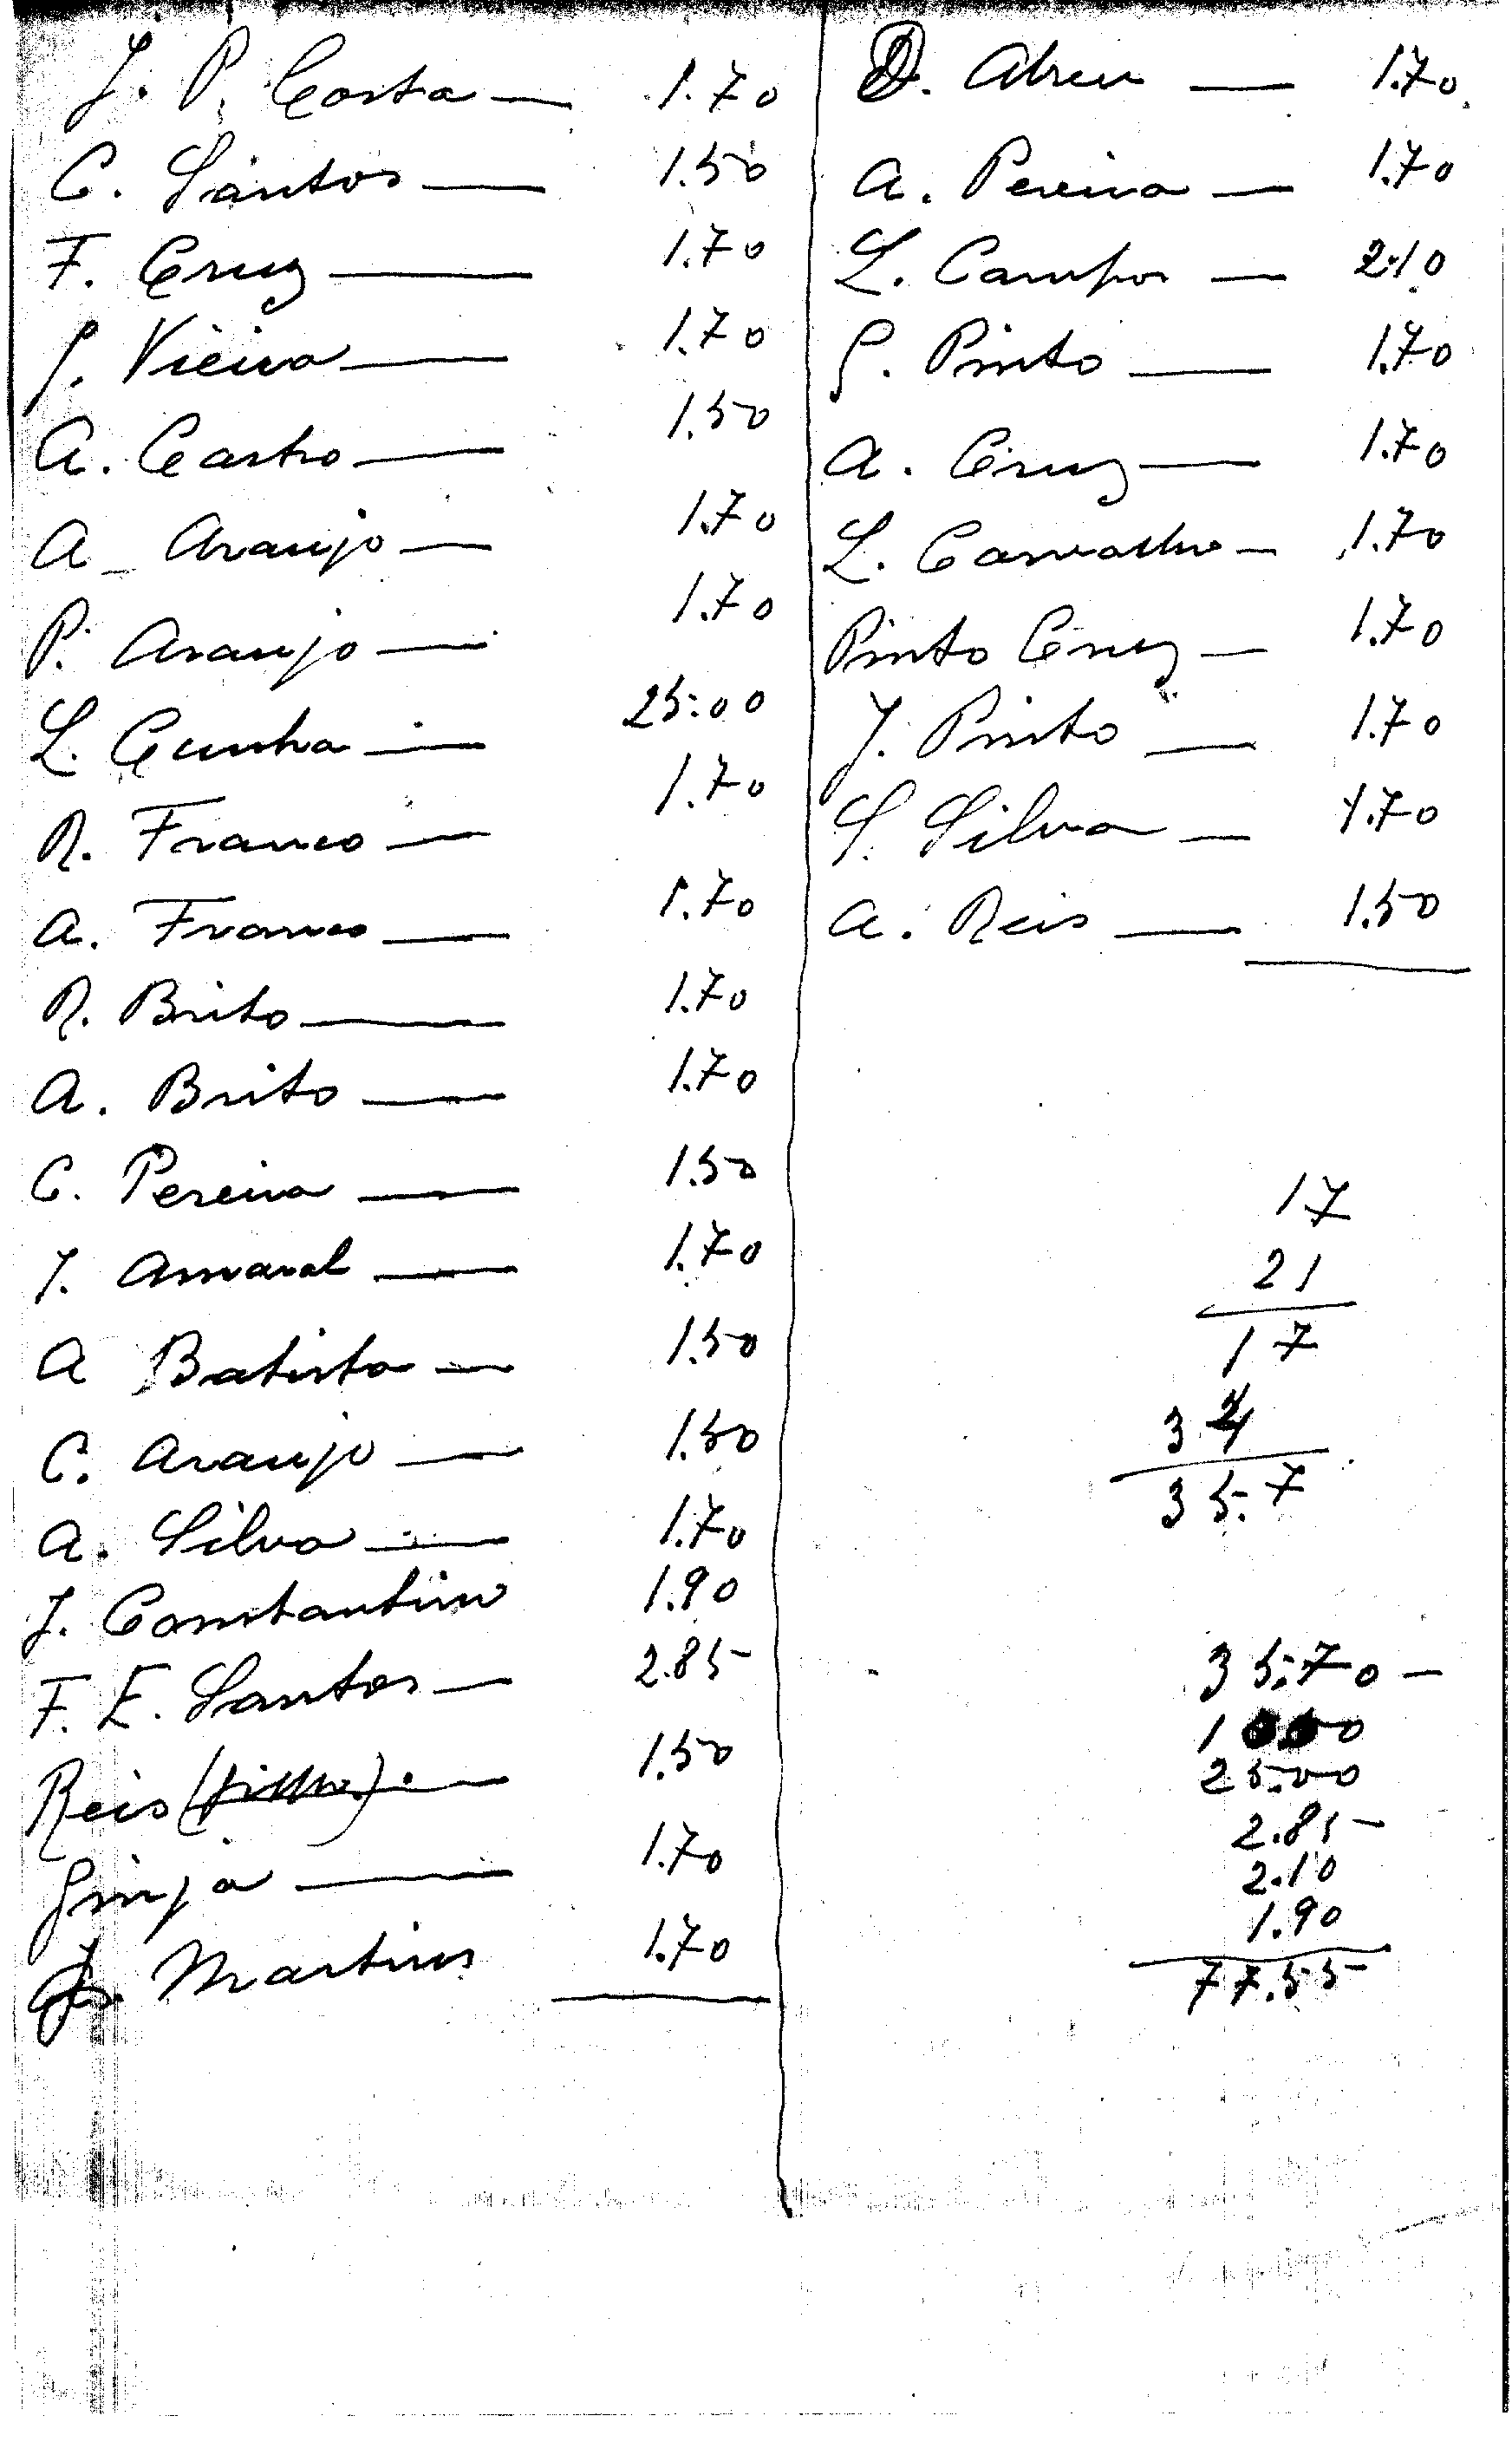 J. P. Costa — 1.70
C. Santos — 1.50
F. Cruz — 1.70
J. Vieira — 1.70
A. Castro — 1.50
A. Araujo — 1.70
P. Araujo — 1.70
L. Cunha — 25.00
R. Franco — 1.70
A. Franco — 1.70
R. Brito — 1.70
A. Brito — 1.70
C. Pereira — 1.50
J. Amaral — 1.70
A Batista — 1.50
C. Araujo — 1.50
A. Silva — 1.70
J. Constantino 1.90
F. E. Santos — 2.85
Reis — 1.50
Ginja — 1.70
Martins 1.70
D. Abreu — 1.70
A. Pereira — 1.70
L. Campos — 2.10
G. Pinto — 1.70
A. Cruz — 1.70
L. Carvalho — 1.70
Pinto Cruz — 1.70
J. Pinto — 1.70
S. Silva — 1.70
A. Reis — 1.50
17
21
17
34
35.7
35.70 —
25.00
2.85
2.10
1.90
77.55